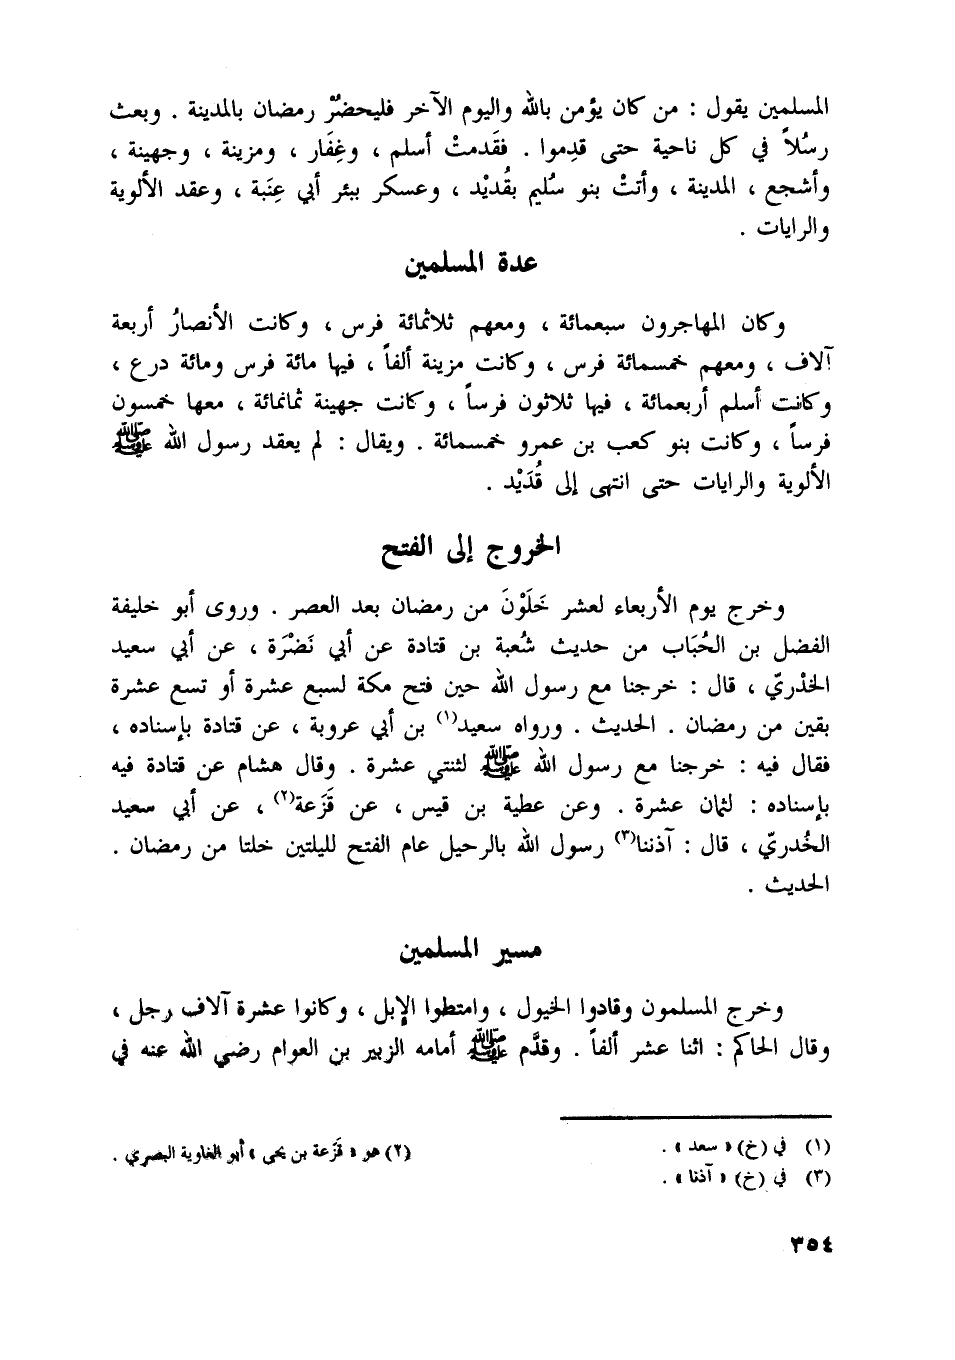 المسلمين يقول : من كان يؤمن بالله واليوم الآخر فليحضُرْ رمضان بالمدينة . وبعث
رسُلاً في كل ناحية حتى قدِموا . فقَدمتْ أسلم ، وغِفَار ، ومزينة ، وجهينة ،
وأشجع ، المدينة ، وأتتْ بنو سُليم بقُديْد ، وعسكر ببئر أبي عِنَبة ، وعقد الألوية
والرايات .
عدة المسلمين
وكان المهاجرون سبعمائة ، ومعهم ثلاثمائة فرس ، وكانت الأنصارُ أربعة
آلاف ، ومعهم خمسمائة فرس ، وكانت مزينة ألفاً ، فيها مائة فرس ومائة درع ،
وكانت أسلم أربعمائة ، فيها ثلاثون فرساً ، وكانت جهينة ثمانمائة ، معها خمسون
فرساً ، وكانت بنو كعب بن عمرو خمسمائة . ويقال : لم يعقد رسول الله ﷺ
الألوية والرايات حتى انتهى إلى قُدَيْد .
الخروج إلى الفتح
وخرج يوم الأربعاء لعشر خَلَوْنَ من رمضان بعد العصر . وروى أبو خليفة
الفضل بن الحُبَاب من حديث شُعبة بن قتادة عن أبي نَضْرَة ، عن أبي سعيد
الخذريّ ، قال : خرجنا مع رسول الله حين فتح مكة لسبع عشرة أو تسع عشرة
بقين من رمضان . الحديث . ورواه سعيد(١) بن أبي عروبة ، عن قتادة بإسناده ،
فقال فيه : خرجنا مع رسول الله ﷺ لثنتي عشرة . وقال هشام عن قتادة فيه
بإسناده : لثمان عشرة . وعن عطية بن قيس ، عن قَزَعة(٢) ، عن أبي سعيد
الخُدريّ ، قال : آذننا(٣) رسول الله بالرحيل عام الفتح لليلتين خلتا من رمضان .
الحديث .
مسير المسلمين
وخرج المسلمون وقادوا الخيول ، وامتطوا الإبل ، وكانوا عشرة آلاف رجل ،
وقال الحاكم : اثنا عشر ألفاً . وقدَّم ﷺ أمامه الزبير بن العوام رضي الله عنه في
(١) في (خ) « سعد » .
(٢) هو « قَزَعة بن يحيى » أبو الغاوية البصري .
(٣) في (خ) « آذنا » .
٣٥٤